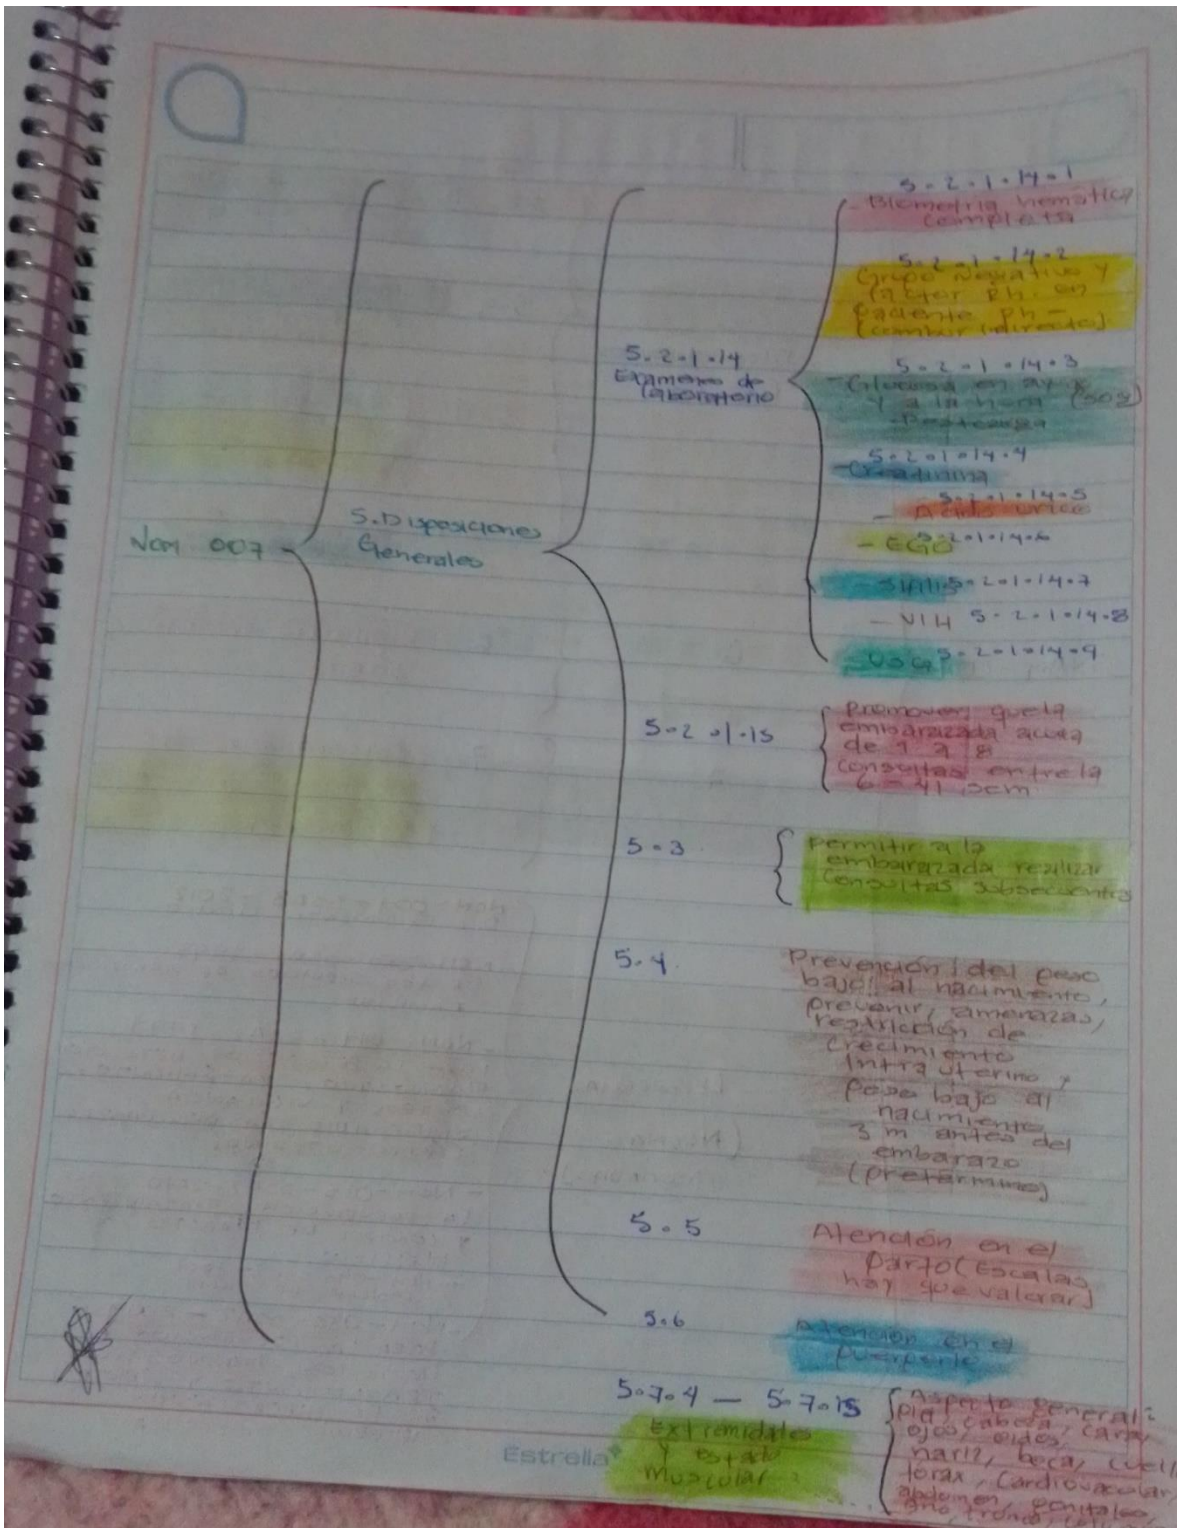 Nom 007
5. Disposiciones
Generales
5.2.1.14
Examenes de
laboratorio
5.2.1.14.1
- Biometria hematica
completa
5.2.1.14.2
Grupo Negativo y
factor Rh. en
paciente Rh -
5.2.1.14.3
- Glucosa en ayuno
y a la hora (50g)
- Postcarga
5.2.1.14.4
- Creatinina
5.2.1.14.5
- Acido urico
- EGO 5.2.1.14.6
- Sifilis 5.2.1.14.7
- VIH 5.2.1.14.8
- USG 5.2.1.14.9
5.2.1.15
Promover que la
embarazada acuda
de
consultas entre la
6 - 41 sem
5.3
permitir a la
embarazada realizar
consultas subsecuentes
5.4.
Prevención del peso
bajo al nacimiento,
prevenir, amenazas,
restricción de
crecimiento
intrauterino y
peso bajo al
nacimiento
3 m antes del
embarazo
(pretermino)
5.5
Atención en el
parto (Escalas
hay que valorar)
5.6
Atención en el
puerperio
5.7.4 — 5.7.15
Extremidades
y estado
muscular
Aspecto general:
piel, cabeza, cara,
ojos, oidos,
nariz, boca, cuell
torax, cardiovascular,
abdomen, genitales,
ano, tronco,
Estrella